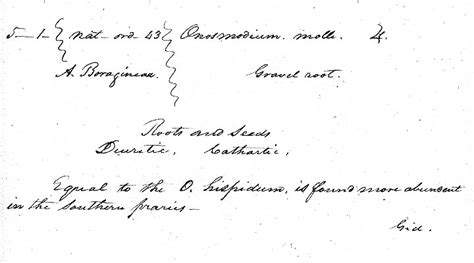 5—1— nat—ord 43 Onosmodium. molle. 4.
A. Boragineae. Gravel root.
Roots and Seeds
Diuretic, Cathartic,
Equal to the O. hispidum, is found more abundent
in the southern praries—
Gid.